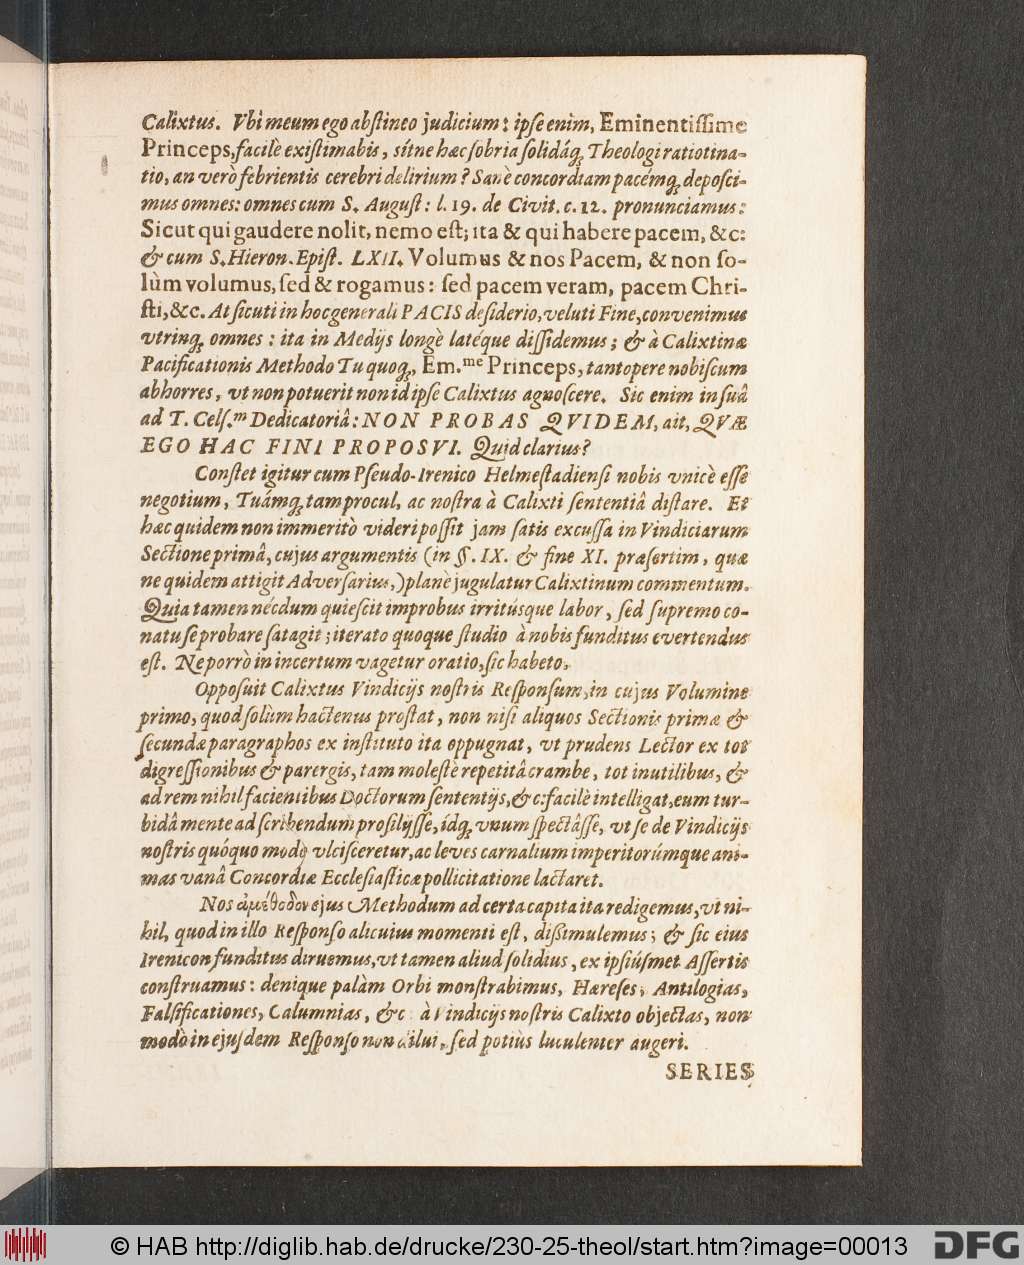 Calixtus. Vbi meum ego abſtineo judicium: ipſe enim, Eminentiſſime
Princeps, facilè exiſtimabis, ſitne hæc ſobria ſolidáq; Theologi ratiotina-
tio, an verò febrientis cerebri delirium? Sanè concordiam pacémq; depoſci-
mus omnes: omnes cum S. Auguſt: l. 19. de Civit. c. 12. pronunciamus:
Sicut qui gaudere nolit, nemo eſt; ita & qui habere pacem, &c:
& cum S. Hieron. Epiſt. LXII. Volumus & nos Pacem, & non ſo-
lùm volumus, ſed & rogamus: ſed pacem veram, pacem Chri-
ſti, &c. At ſicuti in hoc generali PACIS deſiderio, veluti Fine, convenimus
vtrinq; omnes: ita in Medijs longè latéque diſſidemus; & à Calixtinæ
Pacificationis Methodo Tu quoq;, Em.me Princeps, tantopere nobiſcum
abhorres, vt non potuerit non id ipſe Calixtus agnoſcere. Sic enim in ſuâ
ad T. Celſ.m Dedicatoriâ: NON PROBAS QVIDEM, ait, QVÆ
EGO HAC FINI PROPOSVI. Quid clarius?
Conſtet igitur cum Pſeudo-Irenico Helmeſtadienſi nobis vnicè eſſe
negotium, Tuámq; tam procul, ac noſtra à Calixti ſententiâ diſtare. Et
hæc quidem non immeritò videri poſſit jam ſatis excuſſa in Vindiciarum
Sectione primâ, cujus argumentis (in §. IX. & fine XI. præſertim, quæ
ne quidem attigit Adverſarius,) planè jugulatur Calixtinum commentum.
Quia tamen nécdum quieſcit improbus irritúsque labor, ſed ſupremo co-
natu ſe probare ſatagit; iterato quoque ſtudio à nobis funditus evertendus
eſt. Ne porrò in incertum vagetur oratio, ſic habeto.
Oppoſuit Calixtus Vindicijs noſtris Reſponſum, in cujus Volumine
primo, quod ſolùm hactenus proſtat, non niſi aliquos Sectionis primæ &
ſecundæ paragraphos ex inſtituto ita oppugnat, vt prudens Lector ex tot
digreſſionibus & parergis, tam moleſtè repetitâ crambe, tot inutilibus, &
ad rem nihil facientibus Doctorum ſententijs, & c: facilè intelligat, eum tur-
bidâ mente ad ſcribendum proſilijſſe, ídq; vnum ſpectâſſe, vt ſe de Vindicijs
noſtris quóquo modo vlciſceretur, ac leves carnalium imperitorúmque ani-
mas vanâ Concordiæ Eccleſiaſticæ pollicitatione lactaret.
Nos ἀμέθοδον ejus Methodum ad certa capita ita redigemus, vt ni-
hil, quod in illo Reſponſo alicuius momenti eſt, dißimulemus; & ſic eius
Irenicon funditus diruemus, vt tamen aliud ſolidius, ex ipſiúſmet Aſſertis
conſtruamus: denique palàm Orbi monſtrabimus, Hæreſes, Antilogias,
Falſificationes, Calumnias, &c: à Vindicijs noſtris Calixto objectas, non
modò in ejuſdem Reſponſo non dilui, ſed potiùs luculenter augeri.
SERIES
© HAB http://diglib.hab.de/drucke/230-25-theol/start.htm?image=00013
DFG